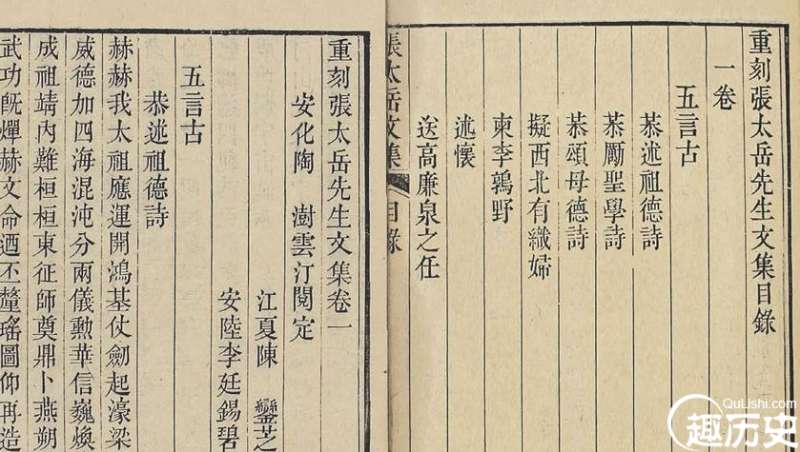 重刻張太岳先生文集目錄
一卷
五言古
恭述祖德詩
恭勵聖學詩
恭頌母德詩
擬西北有織婦
柬李鶉野
述懷
送高廉泉之任
張太岳文集
目錄
重刻張太岳先生文集卷一
安化陶 澍雲汀閱定
江夏陳 鑾芝
安陸李廷錫碧
五言古
恭述祖德詩
赫赫我太祖應運開鴻基仗劍起濠梁
威德加四海混沌分兩儀勲華信巍煥
成祖靖內難桓桓東征師奠鼎卜燕朔
武功旣燀赫文命迺丕釐瑤圖仰再造
QuLishi.com
趣历史